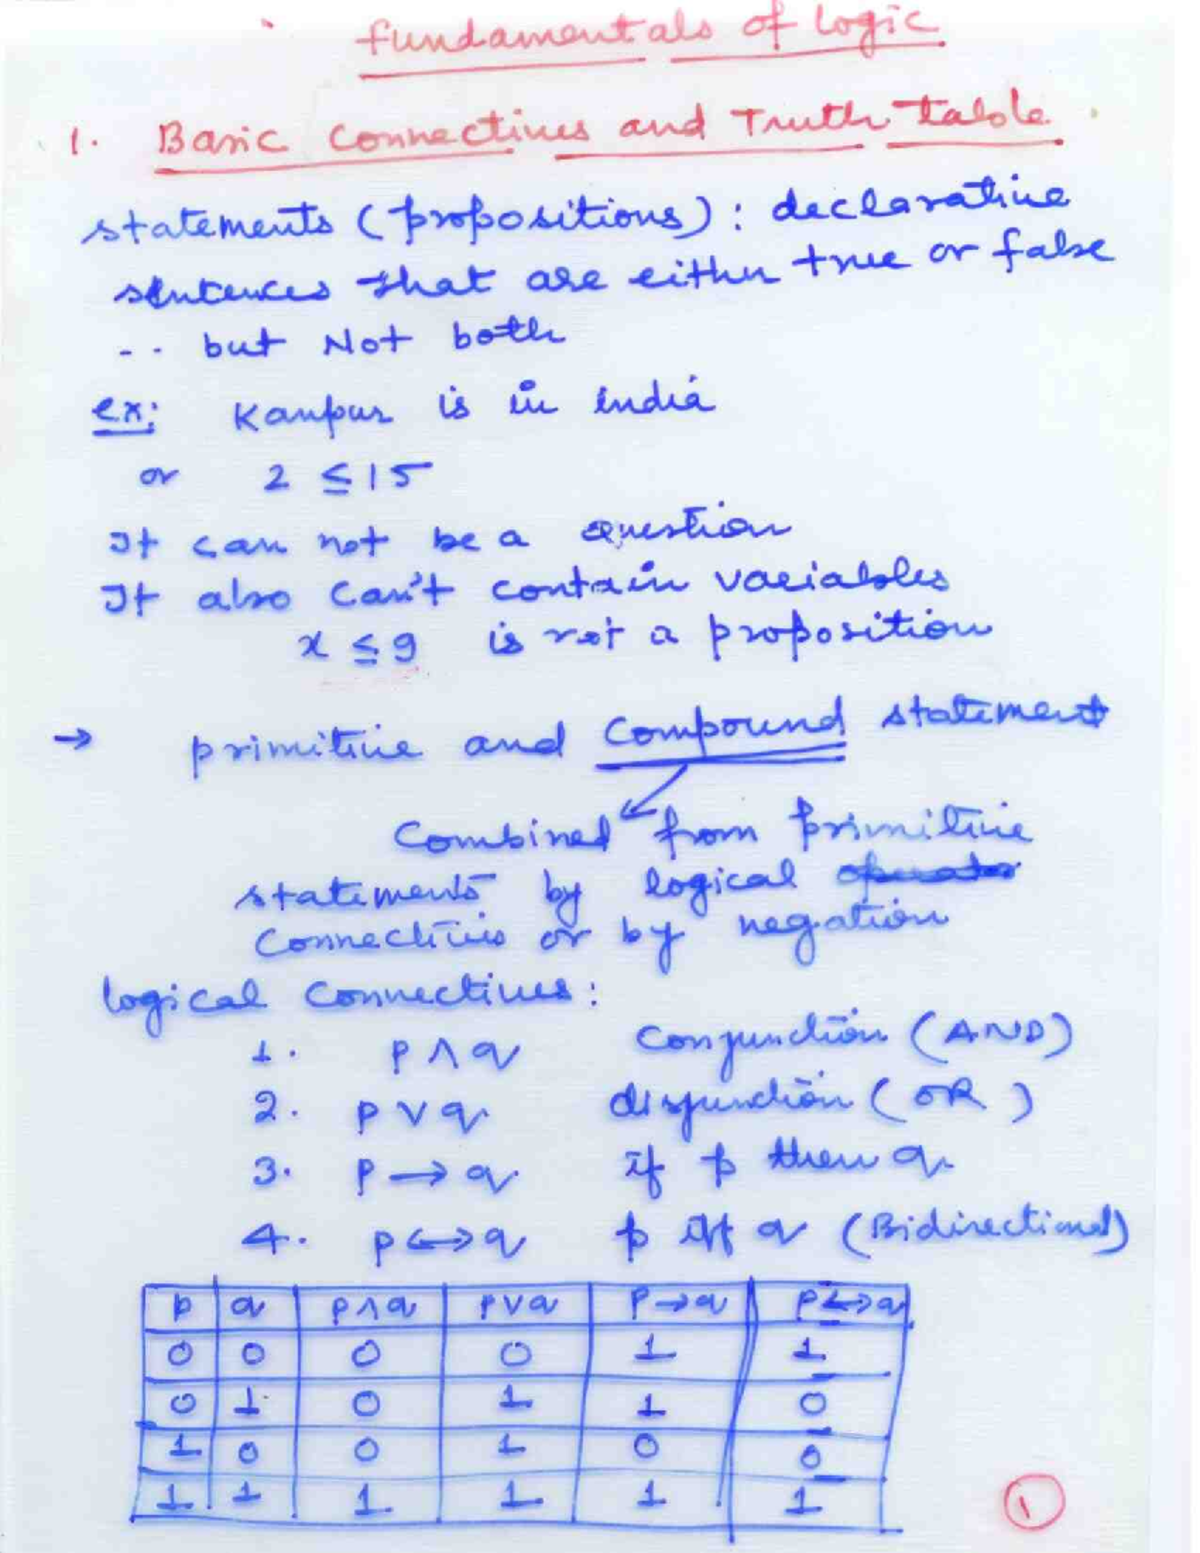 Fundamentals of Logic
1. Basic Connectives and Truth Table
statements (propositions): declarative
sentences that are either true or false
-- but Not both
ex: Kanpur is in India
or 2 ≤ 15
It can not be a question
It also Can't contain variables
x ≤ 9 is not a proposition
→ primitive and Compound statement
Combined from primitive
statements by logical
Connectives or by negation
logical Connectives:
1. p ∧ q Conjunction (AND)
2. p ∨ q disjunction (OR)
3. p → q if p then q
4. p ↔ q p iff q (Bidirectional)
p q p∧q p∨q p→q p↔q
0 0 0 0 1 1
0 1 0 1 1 0
1 0 0 1 0 0
1 1 1 1 1 1
1